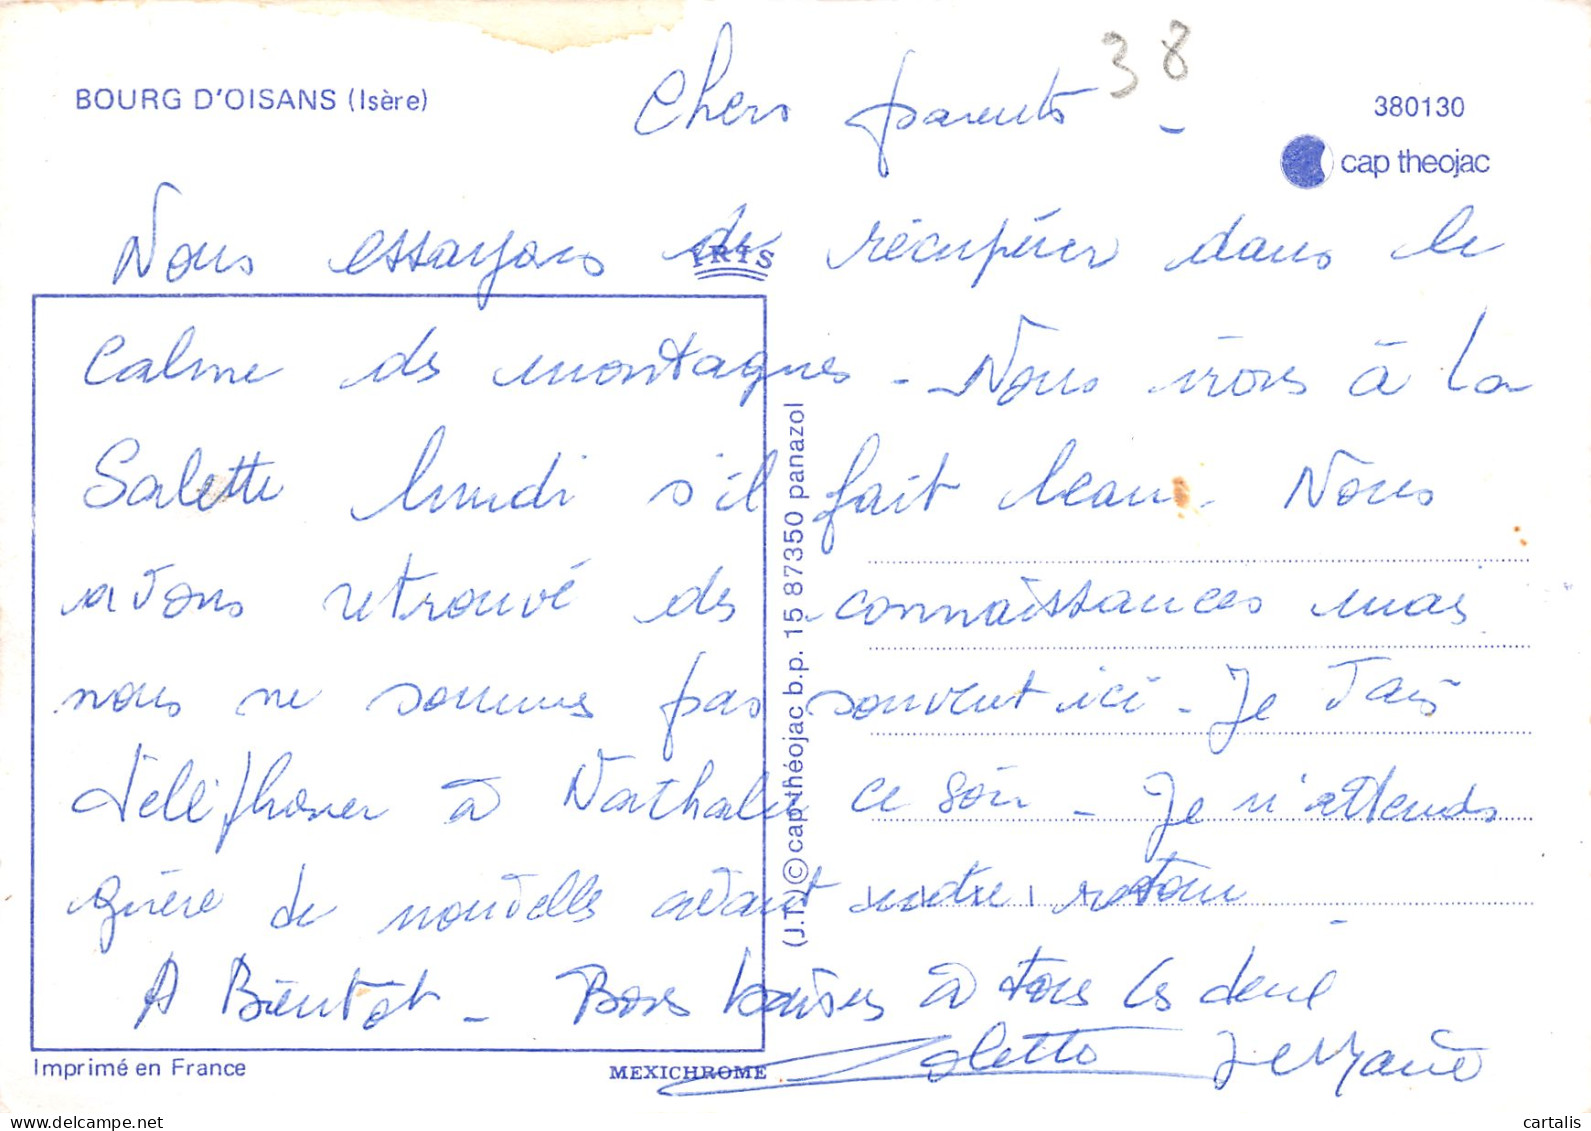 BOURG D'OISANS (Isère)
38
380130
cap theojac
Chers parents -
Nous essayons de récupérer dans le
IRIS
calme des montagnes - Nous irons à La
Salette lundi s'il fait beau. Nous
avons retrouvé des connaissances mais
nous ne sommes pas souvent ici - Je vais
téléphoner à Nathalie ce soir - Je n'attends
guère de nouvelles avant notre retour -
A Bientôt - Bons baisers à tous les deux
Colette
(J.T.) © cap-théojac b.p. 15 87350 panazol
Imprimé en France
MEXICHROME